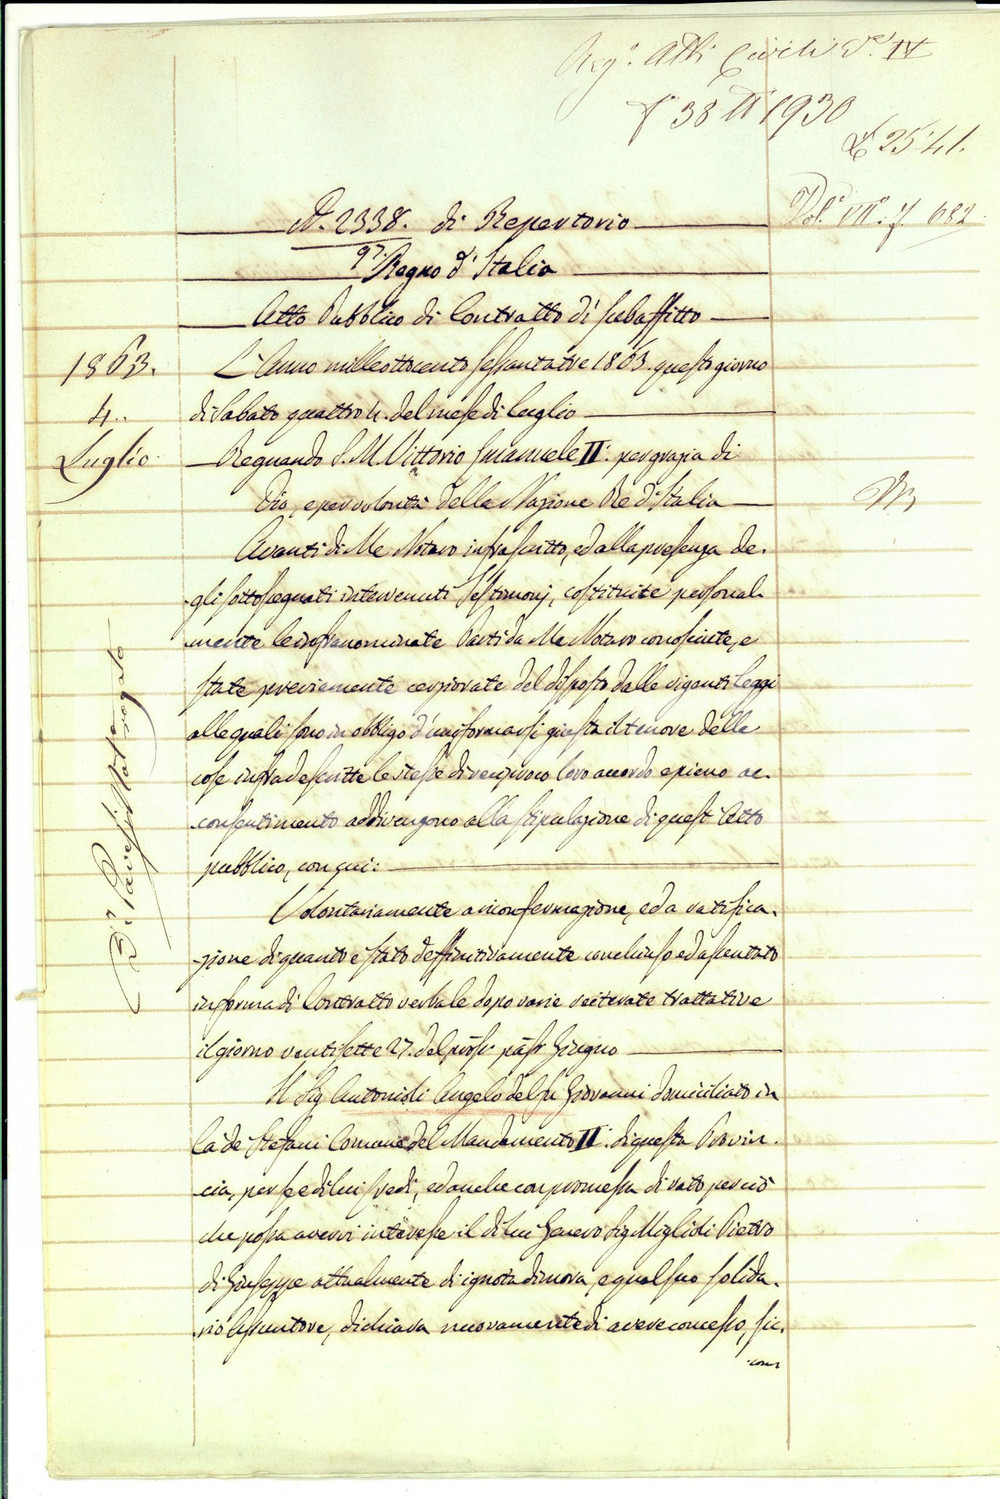 Reg.° Atti Civili V.e IV
f° 38 N 1930
L 25.41.
Vol.e VII.° f. 682
N.° 2338. di Repertorio
Regno d'Italia
Atto Pubblico di Contratto di subaffitto
1863.
4..
Luglio
L'Anno milleottocento sessantatre 1863. questo giorno
di Sabato quattro 4. del mese di Luglio
Regnando S. M. Vittorio Emanuele II. per grazia di
Dio, e per volontà della Nazione Re d'Italia
Avanti di Me Notaro infrascritto, ed alla presenza de-
gli sottosegnati intervenuti Testimonj, costituite personal-
mente le infranominate Parti da Me Notaro conosciute, e
state previamente cerziorate del disposto dalle viganti Leggi
alle quali sono in obbligo d'uniformarsi giusta il tenore delle
cose infradescritte le stesse di reciproco loro accordo e pieno ac-
consentimento addivengono alla stipulazione di quest'Atto
pubblico, con qui:
Volontariamente a riconfermazione, ed a ratifica-
zione di quanto è stato deffinitivamente conchiuso ed assentato
in forma di Contratto verbale dopo varie reiterate trattative
il giorno ventisette 27. del pross.° pass.° Giugno
Il Sig Antonioli Angelo del fu Giovanni domiciliato in
Cà de Stefani Comune del Mandamento II. di questa Provin-
cia, per se e di lui Eredi, ed anche con promessa di rato perciò
che possa avervi interesse il di lui Genero Sig Miglioli Pietro
di Giuseppe attualmente di ignota dimora, e qual suo solida-
rio Assuntore, dichiara nuovamente di avere concesso, sic-
-come